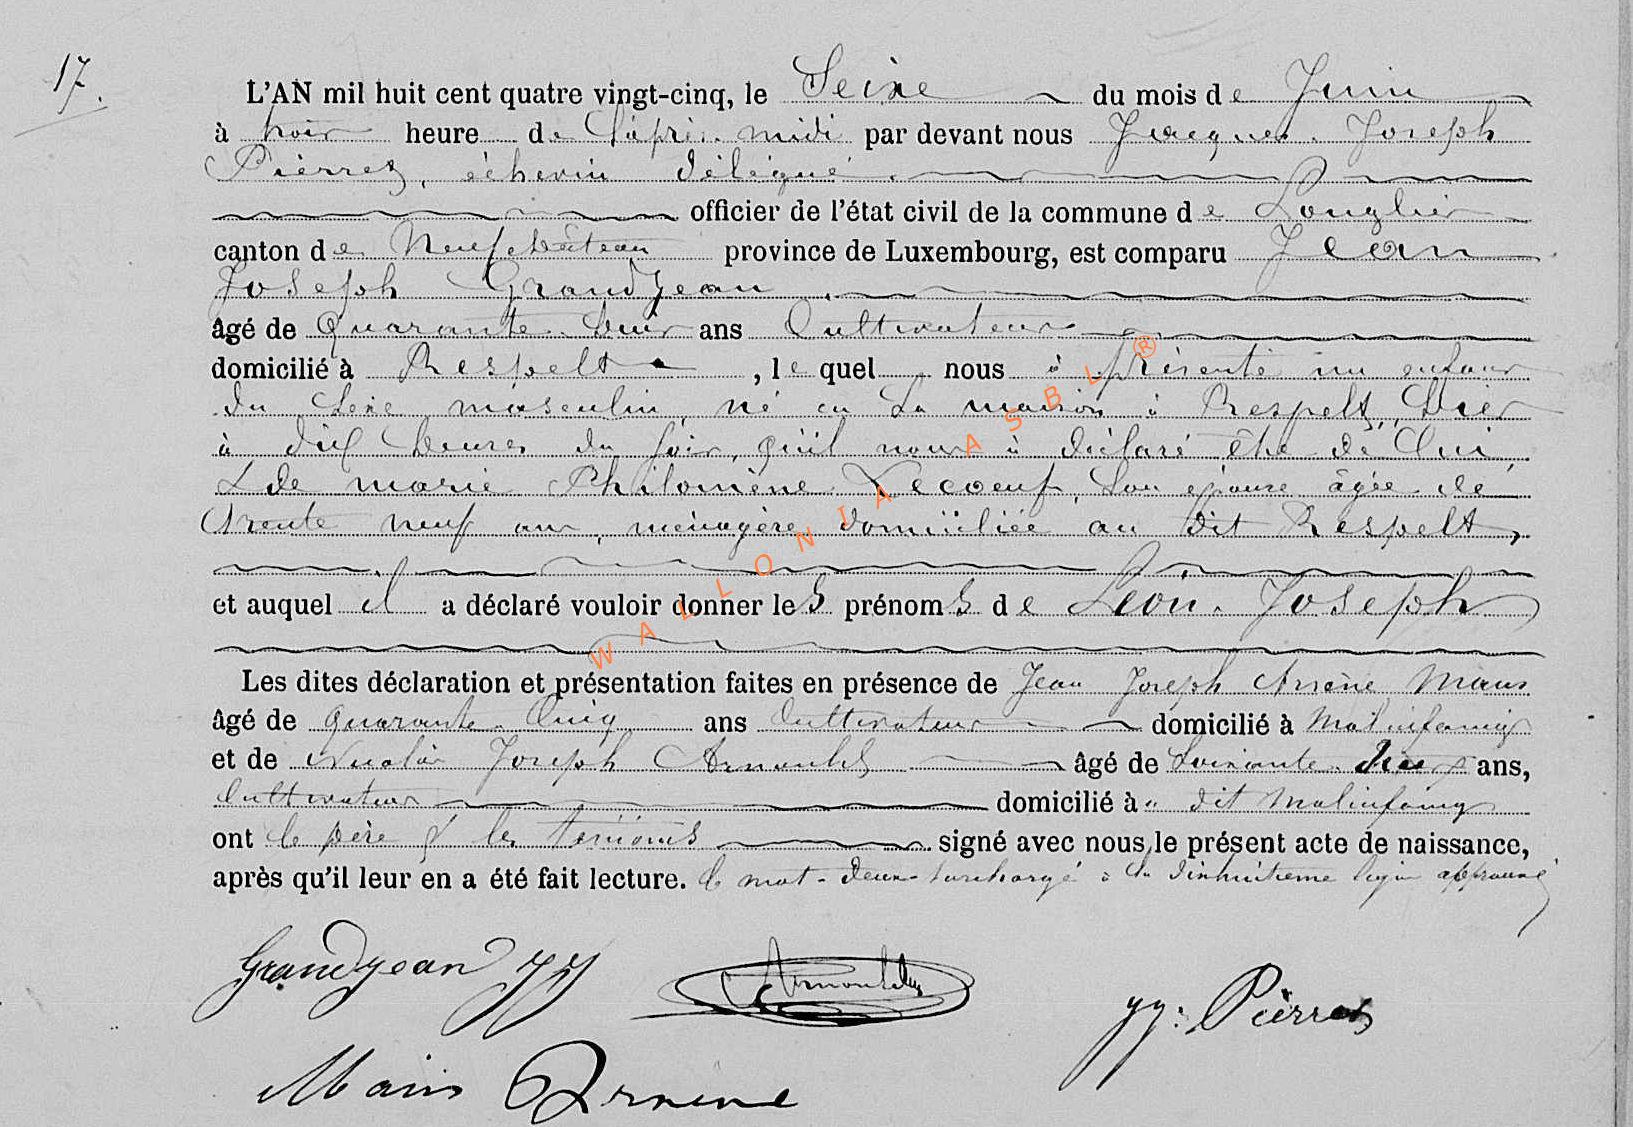 17.
L'AN mil huit cent quatre vingt-cinq, le Seize du mois de Juin
à trois heure de l'après-midi par devant nous Jacques-Joseph
Pierrez, échevin délégué
officier de l'état civil de la commune de Longlier
canton de Neufchâteau province de Luxembourg, est comparu Jean
Joseph Grandjean
âgé de Quarante-deux ans Cultivateur
domicilié à Respelt, lequel nous à présenté un enfant
du sexe masculin, né en la maison à Respelt, hier
à dix heures du soir, qu'il nous à déclaré être de lui
& de marie Philomène Lecoeuf, son épouse âgée de
trente neuf ans, ménagère domiciliée au dit Respelt,
et auquel il a déclaré vouloir donner les prénoms de Léon-Joseph
Les dites déclaration et présentation faites en présence de Jean Joseph Arsène Maus
âgé de quarante-cinq ans Cultivateur domicilié à Molinfaing
et de Nicolas Joseph Arnould âgé de Soixante-deux ans,
Cultivateur domicilié à dit Molinfaing
ont le père & les témoins signé avec nous le présent acte de naissance,
après qu'il leur en a été fait lecture. le mot-deux-surchargé à la dixhuitième ligne approuvé
Grandjean JJ
Arnould
JJ: Pierrez
Arsène
WALLONIA ASBL ®